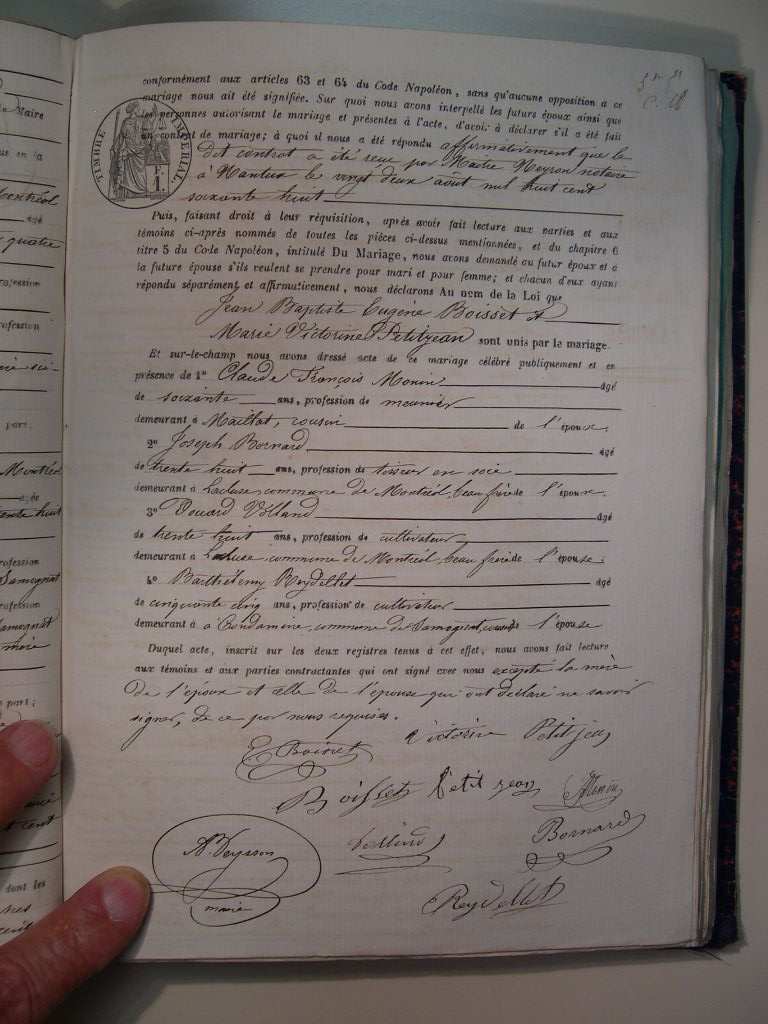 conformément aux articles 63 et 64 du Code Napoléon, sans qu'aucune opposition à ce
mariage nous ait été signifiée. Sur quoi nous avons interpellé les futurs époux ainsi que
les personnes autorisant le mariage et présentes à l'acte, d'avoir à déclarer s'il a été fait
un contrat de mariage; à quoi il nous a été répondu affirmativement que le
dit contrat a été reçu par Maître Neyron notaire
à Nantua le vingt deux août mil huit cent
soixante huit
TIMBRE IMPÉRIAL
1 F.
Puis, faisant droit à leur réquisition, après avoir fait lecture aux parties et aux
témoins ci-après nommés de toutes les pièces ci-dessus mentionnées, et du chapitre 6
titre 5 du Code Napoléon, intitulé Du Mariage, nous avons demandé au futur époux et à
la future épouse s'ils veulent se prendre pour mari et pour femme; et chacun d'eux ayant
répondu séparément et affirmativement, nous déclarons Au nom de la Loi que
Jean Baptiste Eugène Boisset et
Marie Victorine Petitjean sont unis par le mariage.
Et sur-le-champ nous avons dressé acte de ce mariage célébré publiquement et en
présence de 1o Claude François Monin âgé
de soixante ans, profession de meunier
demeurant à Maillat, cousin de l'épouse.
2o Joseph Bornard âgé
de trente huit ans, profession de tisseur en soie
demeurant à Lacluse, commune de Montréal, beau frère de l'épouse.
3o Édouard Volland âgé
de trente huit ans, profession de cultivateur
demeurant à Lacluse, commune de Montréal, beau frère de l'épouse.
4o Barthélemy Reydellet âgé
de cinquante cinq ans, profession de cultivateur
demeurant à à Condamine, commune de Samognat, cousin de l'épouse
Duquel acte, inscrit sur les deux registres tenus à cet effet, nous avons fait lecture
aux témoins et aux parties contractantes qui ont signé avec nous excepté la mère
de l'époux et celle de l'épouse qui ont déclaré ne savoir
signer, de ce par nous requises.
E Boisset Victorine Petitjean
Boisset Petit jean Monin
Volland Bornard
Reydellet
maire